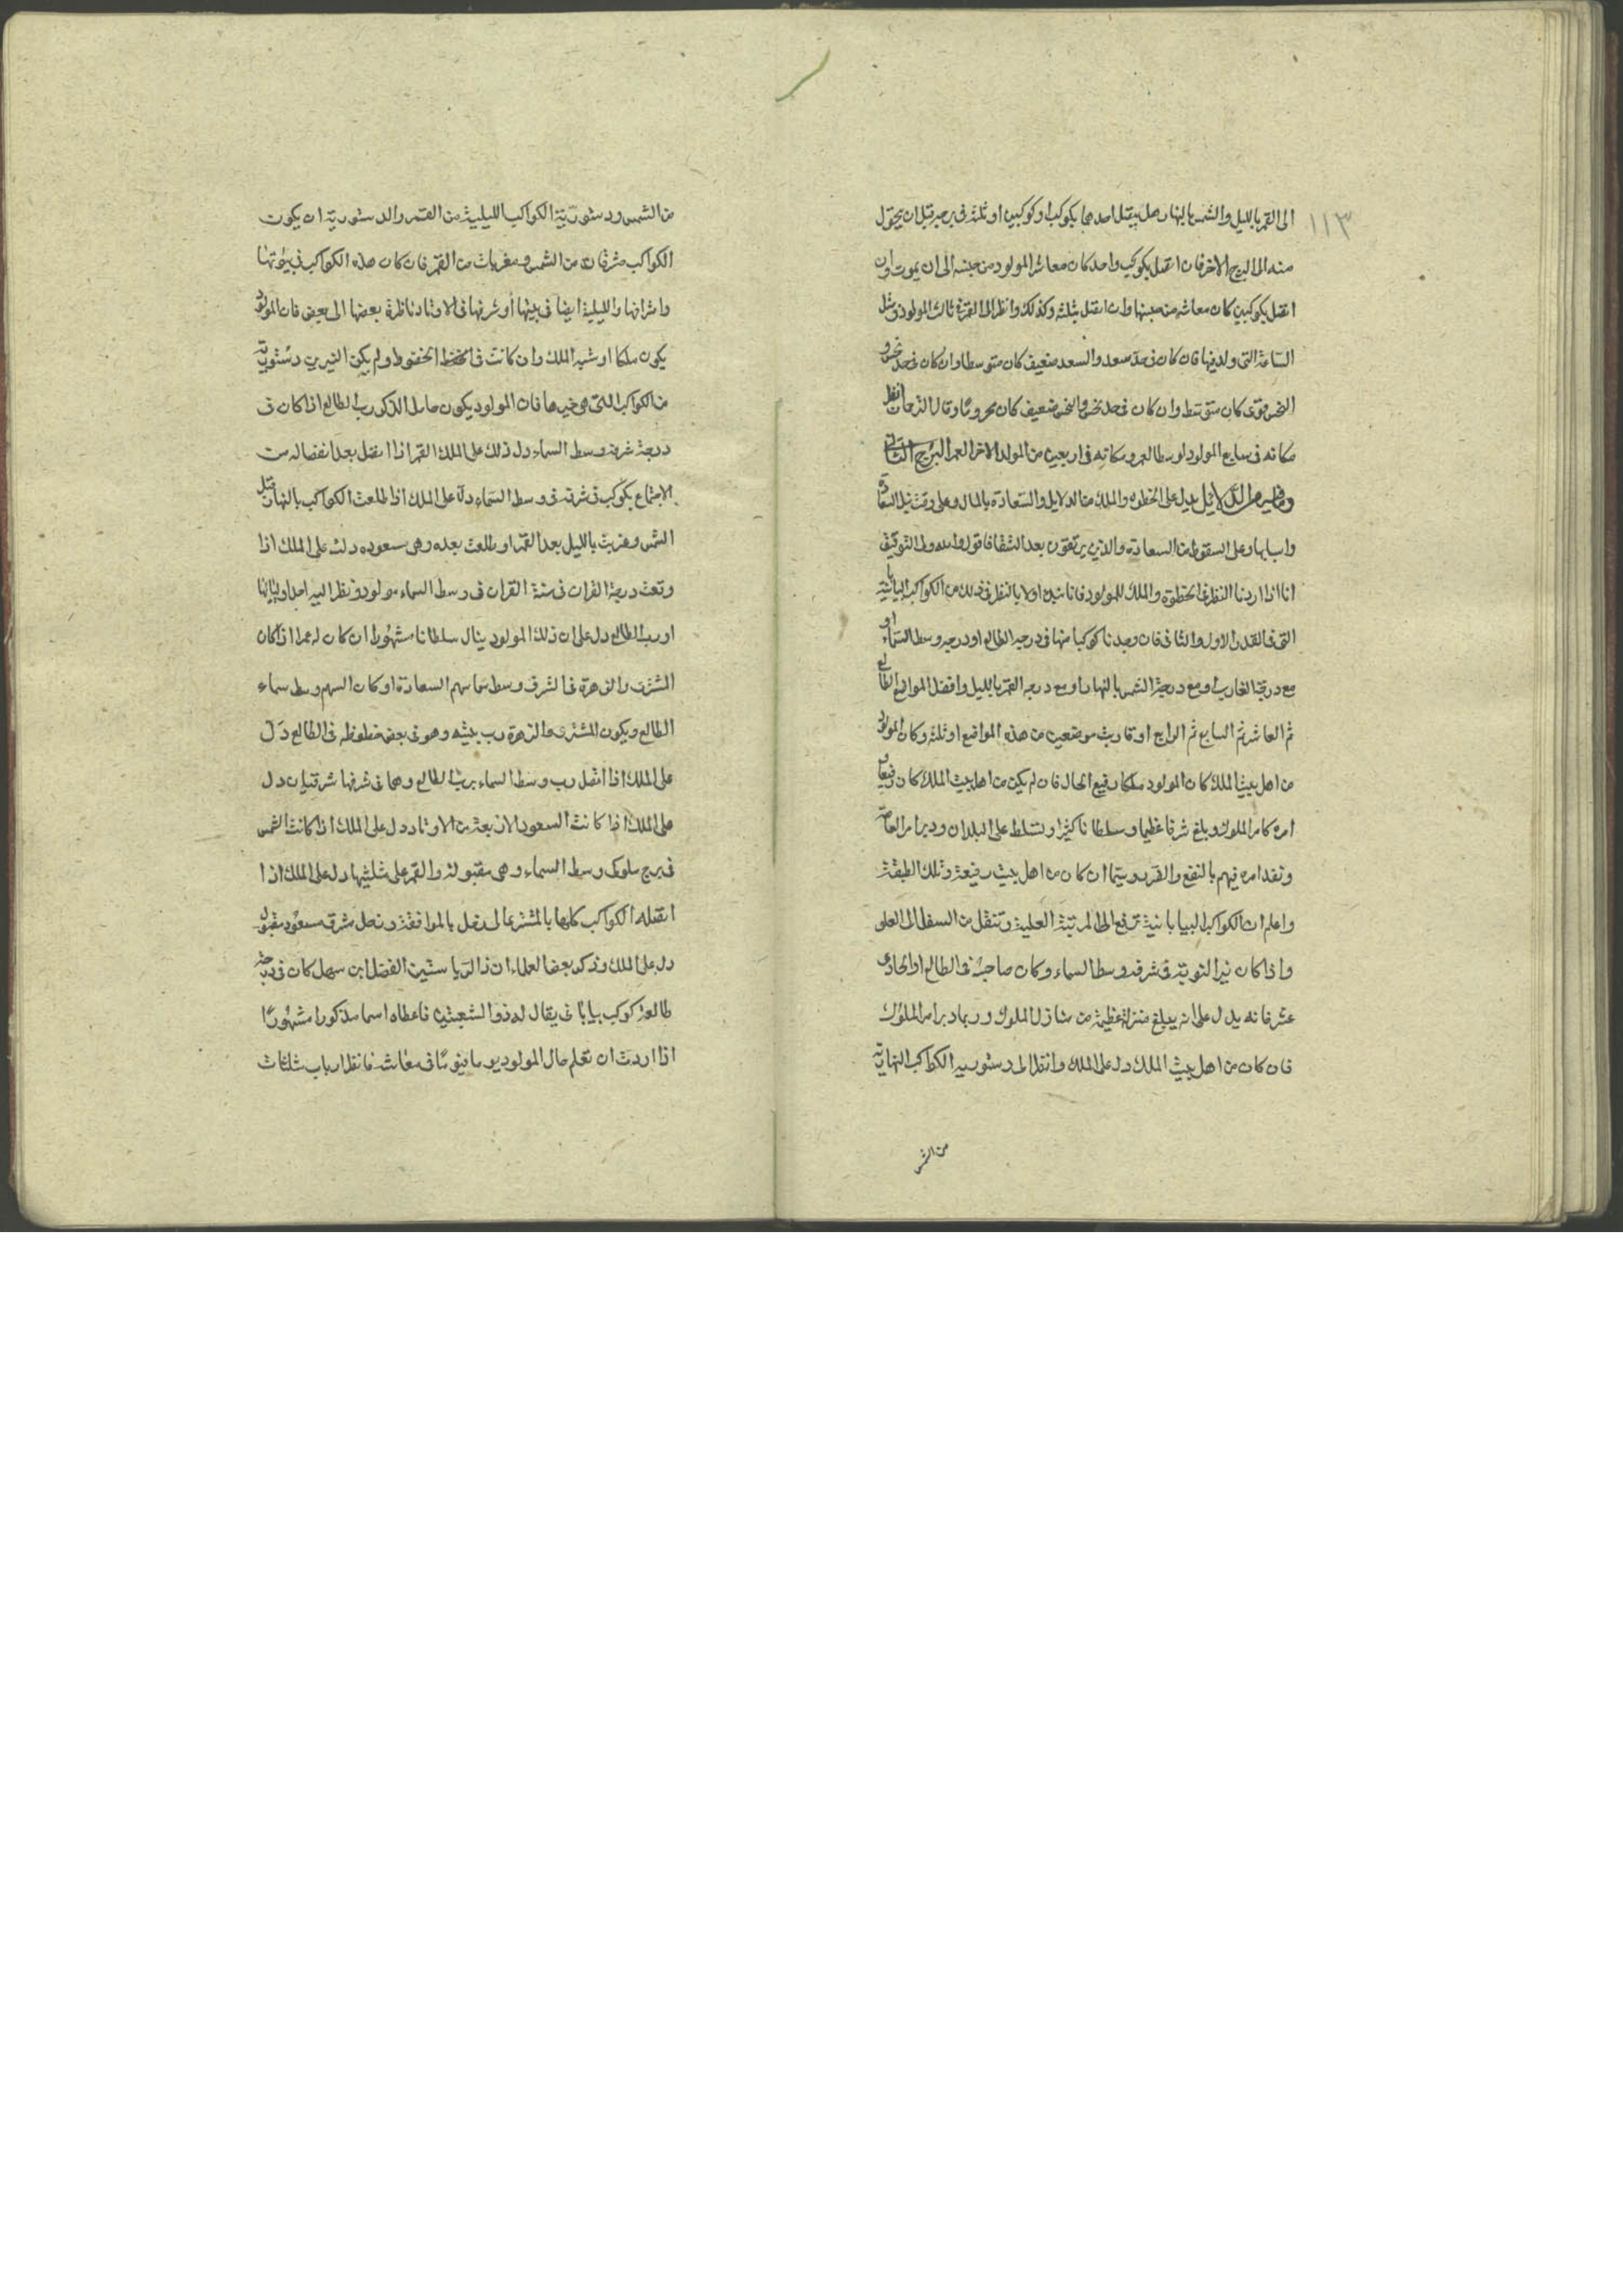 ١١٣
الى القمر بالليل والشمس بالنهار هل يتصل احدهما بكوكب او كوكبين او ثلثة فى برجه قبل ان يتحول
منه الى البرج الاخر فان اتصل بكوكب واحد كان معاش المولود من جنسه الى ان يموت وان
اتصل بكوكبين كان معاشه من جنسها وان اتصل بثلثة وكذلك وانظر الى القمر فى ثالث المولود ومثل
الساعة التى ولد فيها فان كان فى حد سعد والسعد ضعيف كان متوسطا وان كان فى حد نحس و
النحس قوى كان متوسط وان كان فى حد نحس والنحس ضعيف كان محروما وقال الذحان انظر
مكانه فى سابع المولود لوسط العمر ومكانه فى اربعين من المولد لاخر العمر البرج الثانى
وما فيه من الدلائل يدل على الحظوه والملك من الدلايل والسعادة بالمال وعلى وقت نيل السعادة
واسبابها وعلى السقوط من السعادة والذين يرتفعون بعد الشقا فاقول والله ولى التوفيق
انا اذا اردنا النظر فى الحظوة والملك للمولود فانا نبدى اولا بالنظر فى ذلك من الكواكب البيابانية
التى فى القدر الاول والثانى فان وجدنا كوكبا منها فى درجه الطالع او درجه وسط السماء او
مع درجة الغارب او مع درجة الشمس بالنهار او مع درجه القمر بالليل وافضل المواضع الطالع
ثم العاشر ثم السابع ثم الرابع او قارب موضعين من هذه المواضع او ثلثه وكان المولود
من اهل بيت الملك كان المولود ملكا رفيع الحال فان لم يكن من اهل بيت الملك كان رفيعا
امره كامر الملوك وبلغ شرفا عظيما وسلطانا كثيرا وتسلط على البلدان ودبر امر العامة
ونفد امره فيهم بالنفع والضر وسيما ان كان من اهل بيت رفيعة وتلك الطبقة
واعلم ان الكواكب البيابانية ترفع الى المرتبة العلية وتنقل من السفل الى العلو
واذا كان نير النوبة فى شرفه وسط السماء وكان صاحبه فى الطالع او الحادى
عشر فانه يدل على انه يبلغ منزلة عظيمة من منازل الملوك وربما دبر امر الملوك
فان كان من اهل بيت الملك دل على الملك وانظر الى دستوريه الكواكب النهارية
من الشمس
من الشمس ودستورية الكواكب الليلية من القمر والدستورية ان يكون
الكواكب مشرقات من الشمس ومغربات من القمر فان كان هذه الكواكب فى بيوتها
واشرافها والليلية ايضا فى بيتها او شرفها فى الاوتاد ناظرة بعضها الى بعض فان المولود
يكون ملكا او شبه الملك وان كانت فى الحظ المحفوظ ولم يكن النيرين دستورية
من الكواكب التى هى خيرها فان المولود يكون حامل الذكر رب الطالع اذا كان فى
درجة شرفه وسط السماء دل ذلك على الملك القمر اذا اتصل بعد انفصاله من
الاجتماع بكوكب فى شرفه فى وسط السماء دل على الملك اذا طلعت الكواكب بالنهار قبل
الشمس وغربت بالليل بعد القمر او طلعت بعده وهى سعوده دلت على الملك اذا
وقعت درجة القران فى سنة القران فى وسط السماء مولود ونظر اليه
او رب الطالع دل على ان ذلك المولود ينال سلطانا مشهورا ان كان له عمرا اذا كان
المشترى والزهرة فى الشرف وسط سما سهم السعادة او كان السهم وسط سماء
الطالع ويكون المشترى والزهرة رب بيته وهو فى بعض حظوظه فى الطالع دل
على الملك اذا اتصل رب وسط السماء برب الطالع وهما فى شرفها شرقيان دل
على الملك اذا كانت السعود الاربعة من الاوتاد دل على الملك اذا كانت الشمس
فى برج ملوكى وسط السماء وهى مقبولة والقمر على تثليثها دل على الملك اذا
اتصلة الكواكب كلها بالمشترى الى زحل بالموافقة وزحل شرقى مسعود مقبول
دل على الملك وذكر بعض العلماء ان ذا الرياستين الفضل ابن سهل كان فى درجة
طالعة كوكب بيابانى يقال له ذو الشعبتين فاعطاه اسما مذكورا مشهورا
اذا اردت ان تعلم حال المولود يوما فيوما فى معاشه فانظر ارباب مثلثات